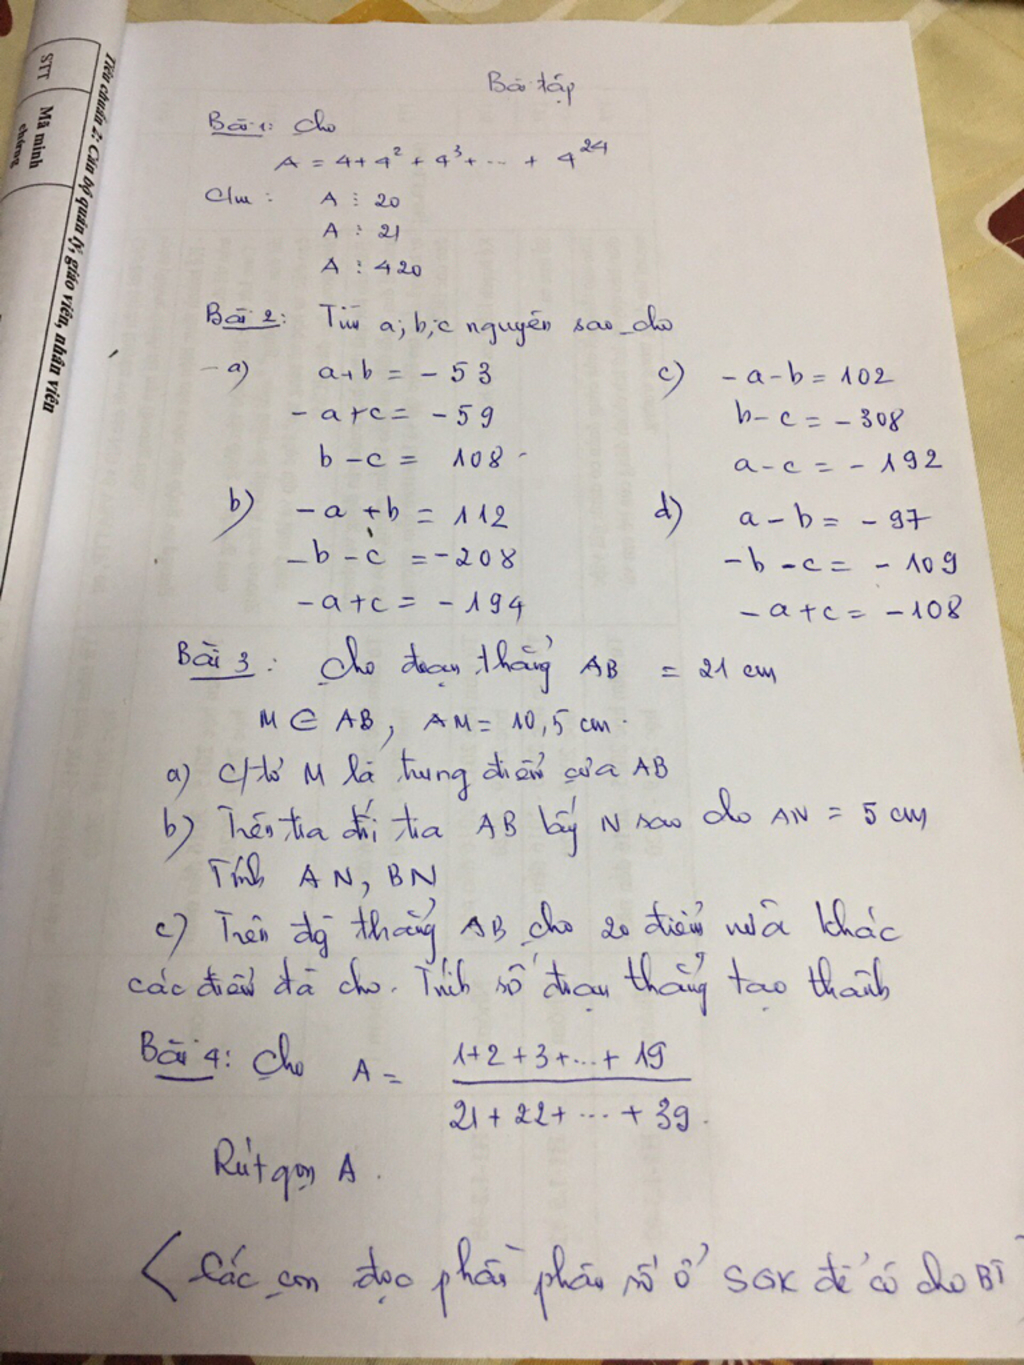 STT
Mã minh
chứng
Tiêu chuẩn 2: Cán bộ quản lý, giáo viên, nhân viên
Bài tập
Bài 1: Cho
A = 4 + 4² + 4³ + ... + 4²⁴
C/m : A ⋮ 20
A ⋮ 21
A ⋮ 420
Bài 2: Tìm a; b; c nguyên sao cho
a) a + b = - 53
- a + c = - 59
b - c = 108
b) - a + b = 112
- b - c = - 208
- a + c = - 194
c) - a - b = 102
b - c = - 308
a - c = - 192
d) a - b = - 97
- b - c = - 109
- a + c = - 108
Bài 3 : Cho đoạn thẳng AB = 21 cm
M ∈ AB, AM = 10,5 cm.
a) C/tỏ M là trung điểm của AB
b) Trên tia đối tia AB lấy N sao cho AN = 5 cm
Tính AN, BN
c) Trên đg thẳng AB cho 20 điểm nữa khác
các điểm đã cho. Tính số đoạn thẳng tạo thành
Bài 4: Cho A = 1 + 2 + 3 + ... + 19
21 + 22 + ... + 39.
Rút gọn A.
( Các con đọc phần phân số ở SGK để cô cho BT )